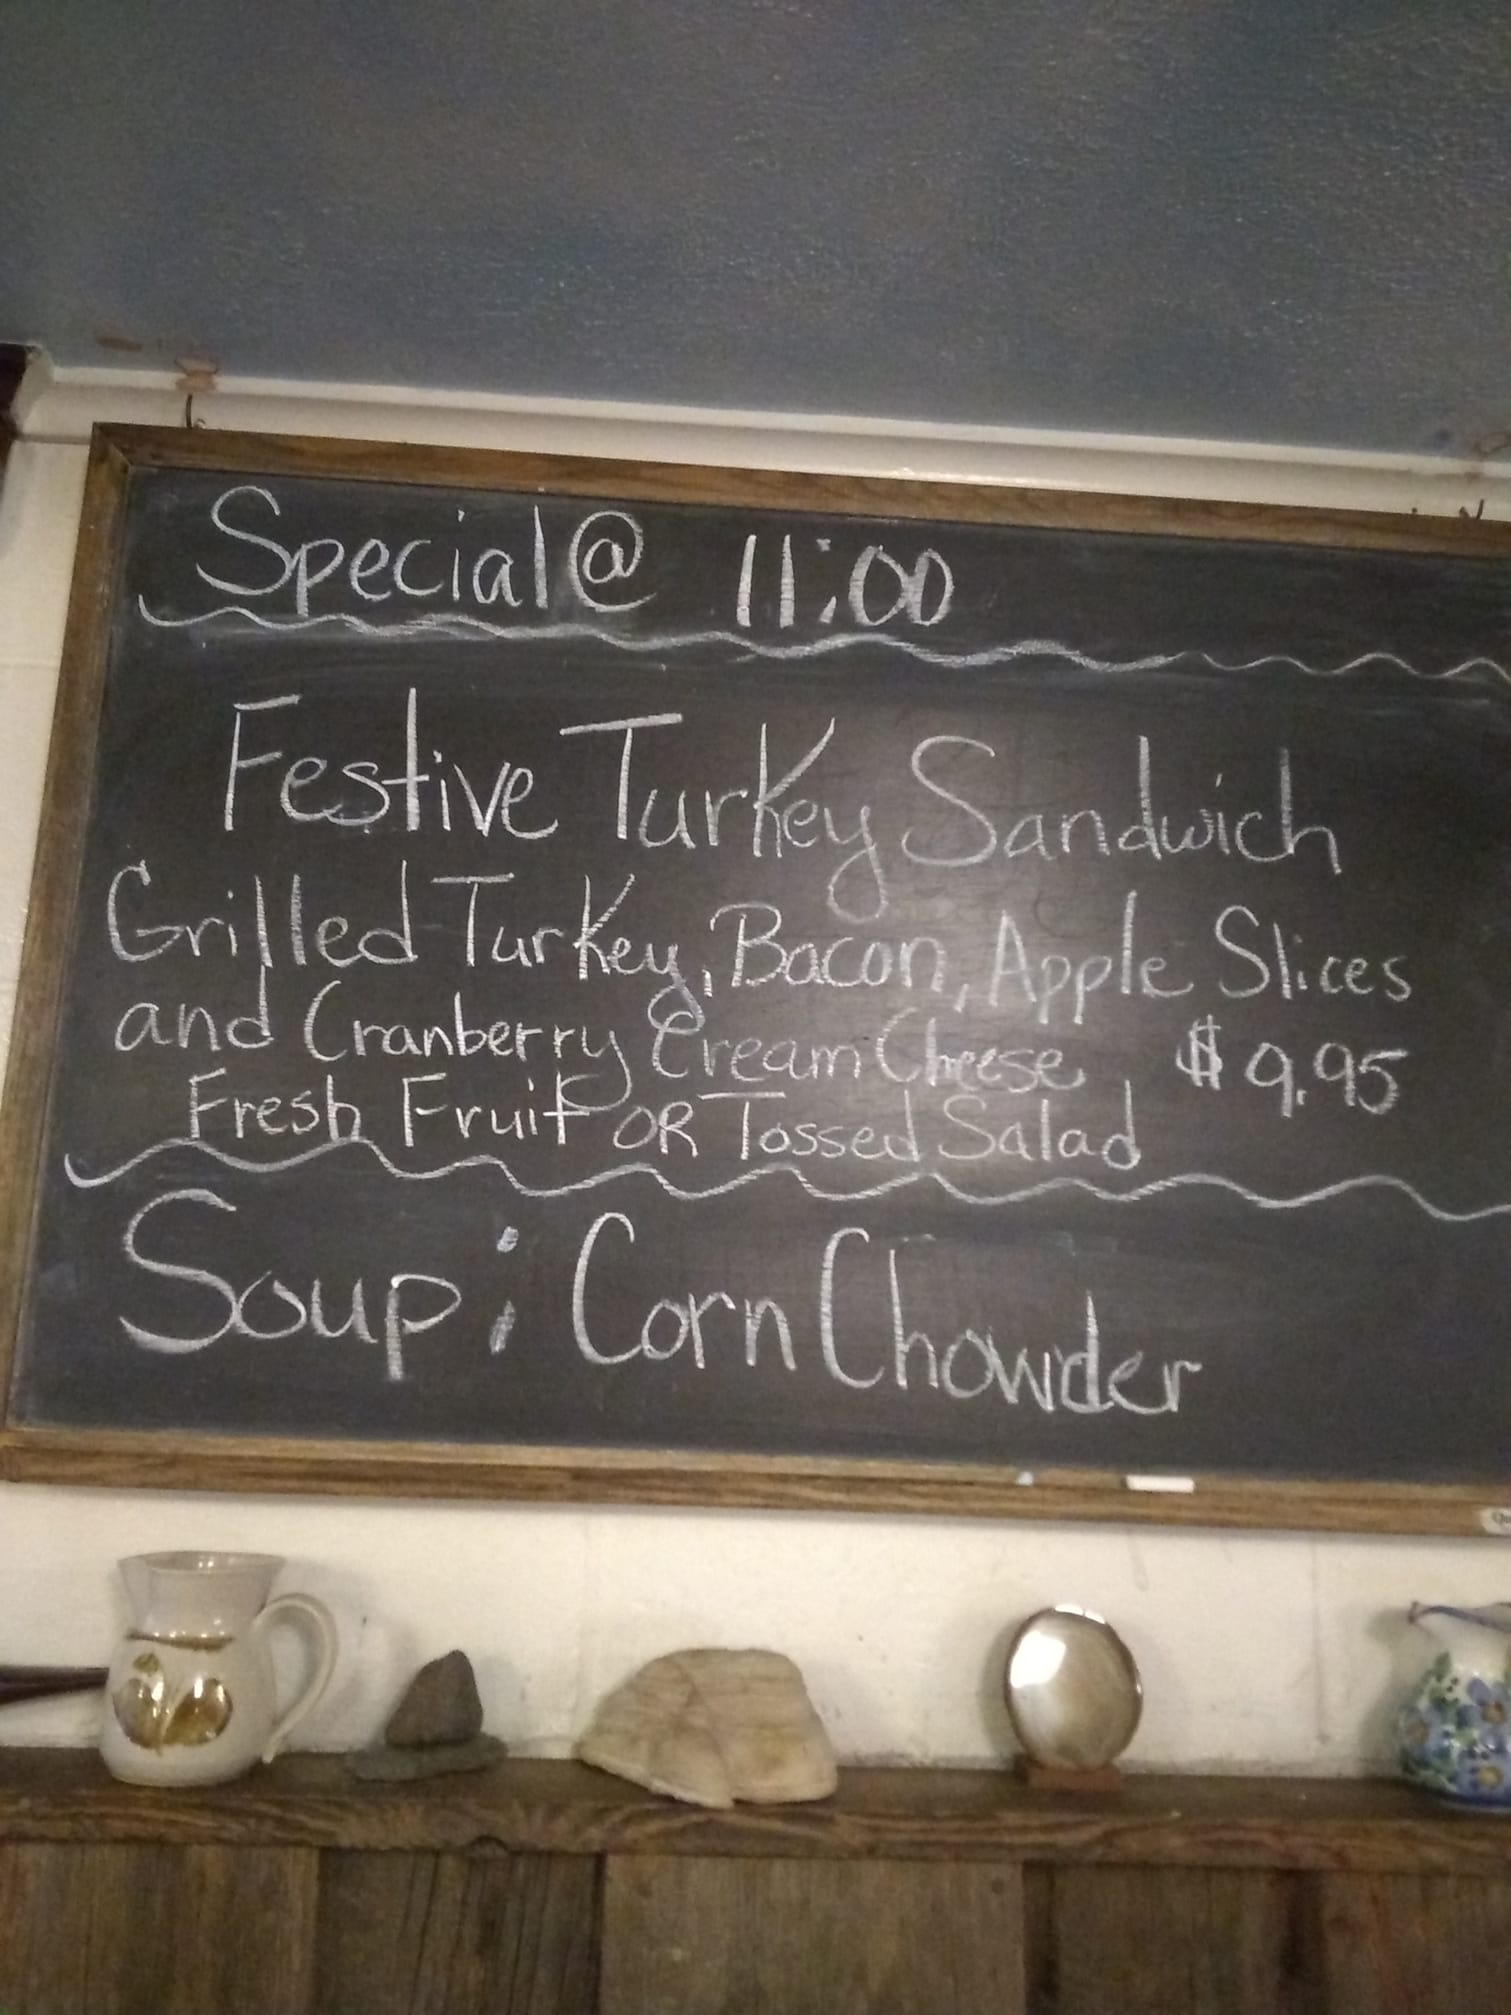 Special @ 11:00
Festive Turkey Sandwich
Grilled Turkey, Bacon, Apple Slices
and Cranberry Cream Cheese, $9.95
Fresh Fruit OR Tossed Salad
Soup: Corn Chowder